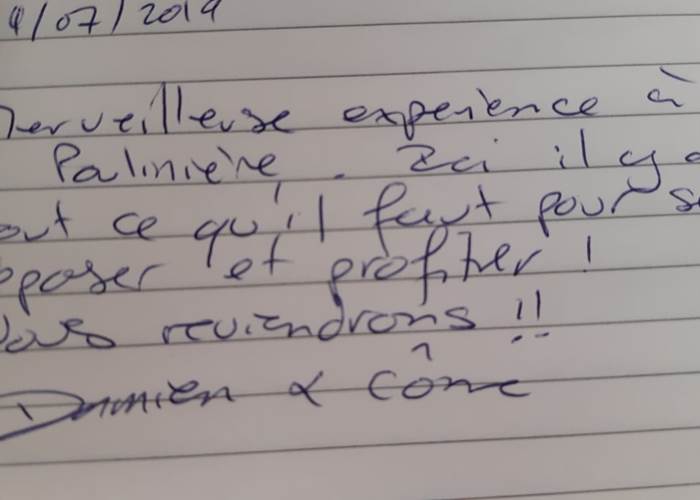 4/07/2019
Merveilleuse experience à
Palinière. Ici il y a
out ce qu'il faut pour se
eposer et profiter !
Nous reviendrons !!
Damien & Côme